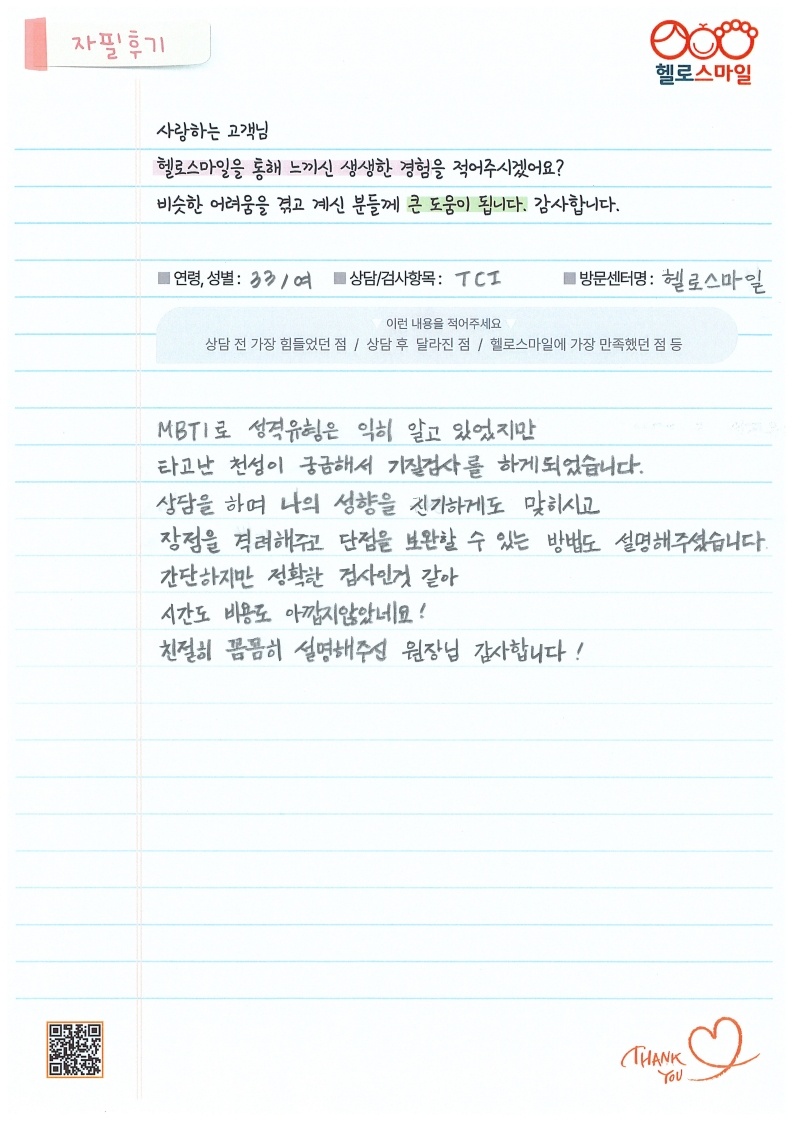 자필후기
헬로스마일
사랑하는 고객님
헬로스마일을 통해 느끼신 생생한 경험을 적어주시겠어요?
비슷한 어려움을 겪고 계신 분들께 큰 도움이 됩니다. 감사합니다.
연령, 성별 : 33/여 상담/검사항목 : TCI 방문센터명 : 헬로스마일
이런 내용을 적어주세요
상담 전 가장 힘들었던 점 / 상담 후 달라진 점 / 헬로스마일에 가장 만족했던 점 등
MBTI로 성격유형은 익히 알고 있었지만
타고난 천성이 궁금해서 기질검사를 하게되었습니다.
상담을 하며 나의 성향을 신기하게도 맞히시고
장점을 격려해주고 단점을 보완할 수 있는 방법도 설명해주셨습니다.
간단하지만 정확한 검사인것 같아
시간도 비용도 아깝지않았네요!
친절히 꼼꼼히 설명해주신 원장님 감사합니다!
THANK
YOU